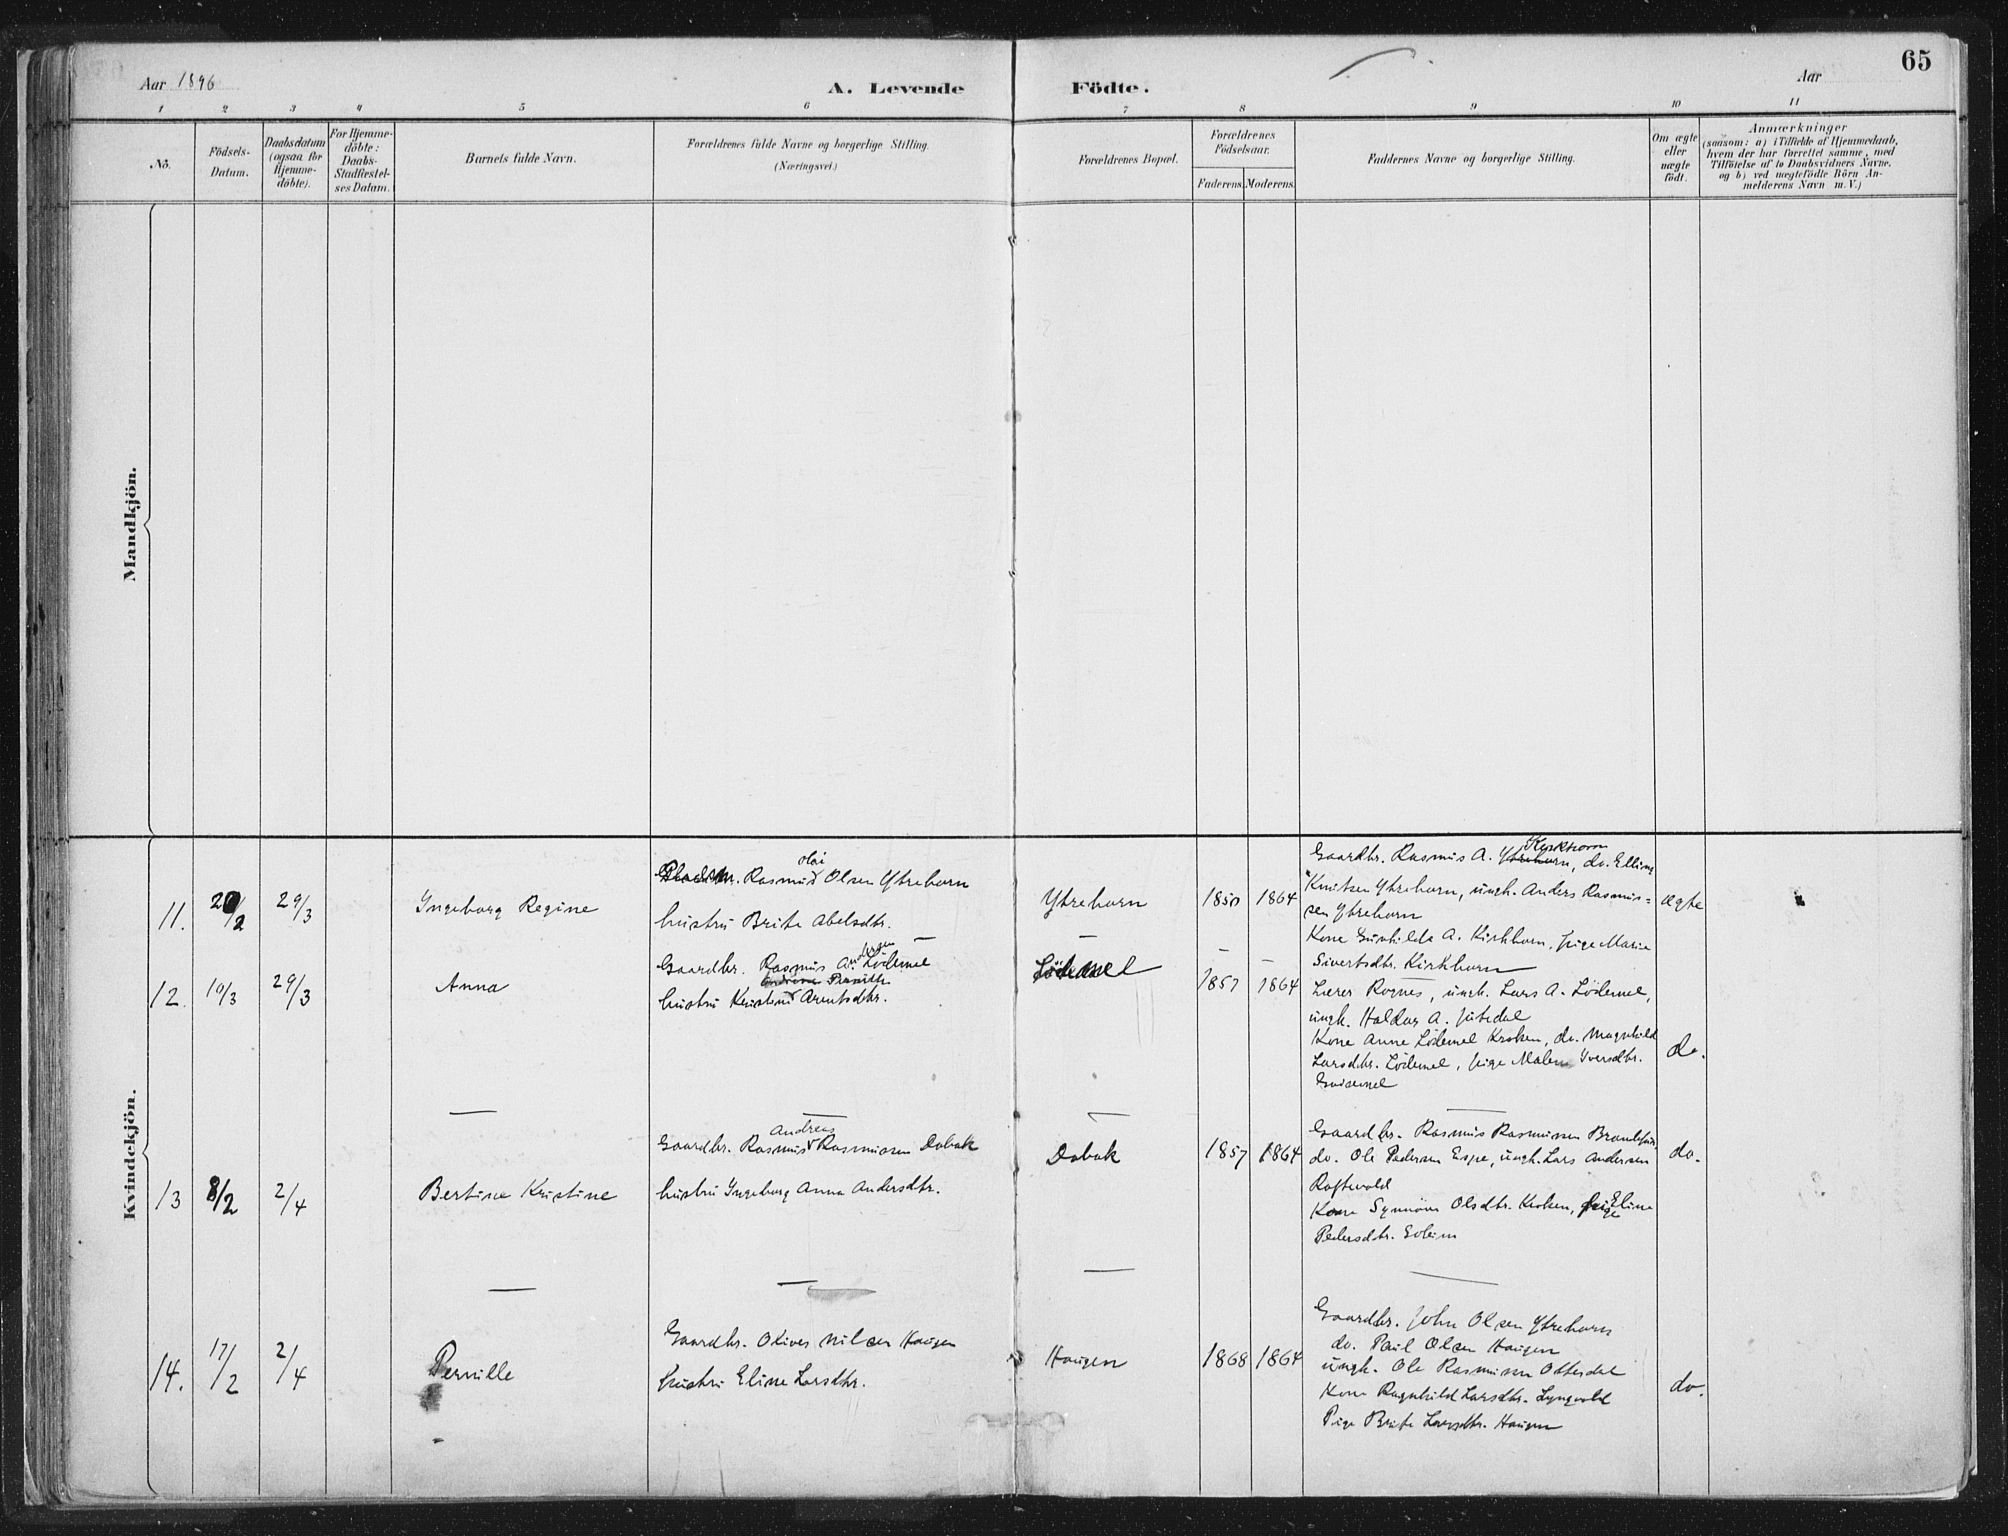 65
Aar 1896
A. Levende
Födte.
Aar
1 2 3 4 5 6 7 8 9 10 11
No.
Födsels-
Datum.
Daabsdatum
(ogsaa for
Hjemme-
döbte).
For Hjemme-
döbte:
Daabs-
Stadfæstel-
ses Datum.
Barnets fulde Navn.
Forældrenes fulde Navne og borgerlige Stilling.
(Næringsvei.)
Forældrenes Bopæl.
Forældrenes
Födselsaar.
Faderens. Moderens.
Faddernes Navne og borgerlige Stilling.
Om ægte
eller
uægte
födt.
Anmærkninger
(saasom: a) i Tilfælde af Hjemmedaab,
hvem der har forrettet samme, med
Tilföielse af to Daabsvidners Navne,
og b) ved uægtefödte Börn An-
melderens Navn m. V.)
Mandkjön.
Kvindekjön.
11.
20/2
29/3
Ingeborg Regine
Olai
Rasmus Olsen Ytrehorn
hustru Brite Abelsdtr.
Ytrehorn
1850
1864
Kirkhorn
Gaardbr. Rasmus A. Ytrehorn, do. Elling
Knutsen Ytrehorn, ungk. Anders Rasmus-
sen Ytrehorn
Kone Gunhilda A. Kirkhorn, pige Marie
Sivertsdtr. Kirkhorn
ægte
12.
10/3
29/3
Anna
Gaardbr. Rasmus Andersen Lödemel
hustru Arentsdtr.
Lödemel
1857
1864
Lærer Rognes, ungk. Lars A. Lödemel,
ungk. Haldor A.
Kone Anne Lödemel Kroken, do. Magnhild
Larsdtr. Lödemel, pige Malene Iversdtr.
do.
13
8/2
2/4
Bertine Kristine
Andreas
Gaardbr. Rasmus Rasmussen Dabak
hustru Ingeborg Anna Andersdtr.
Dabak
1857
1864
Gaardbr. Rasmus Rasmussen
do. Ole Pedersen Espe, ungk. Lars Andersen
Raftevold
Kone Synnöve Olsdtr. Kroken, pige Eline
Pedersdtr. Soleim
do.
14.
17/2
2/4
Pernille
Gaardbr. Oliver Nilsen Haugen
hustru Eline Larsdtr.
Haugen
1868
1864
Gaardbr. John Olsen Ytrehorn
do. Paul Olsen Haugen
ungk. Ole Rasmussen Ottesdal
Kone Ragnhild Larsdtr. Lyngvold
Pige Brite Larsdtr. Haugen
do.